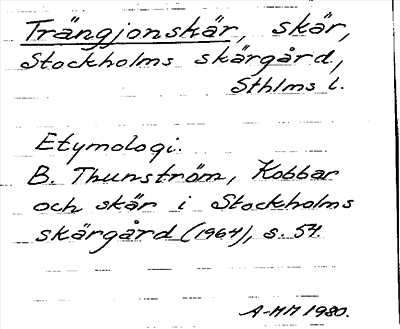 Trängjonskär, skär,
Stockholms skärgård,
Sthlms l.
Etymologi.
B. Thunström, Kobbar
och skär i Stockholms
skärgård (1964), s. 54.
A-MM 1980.